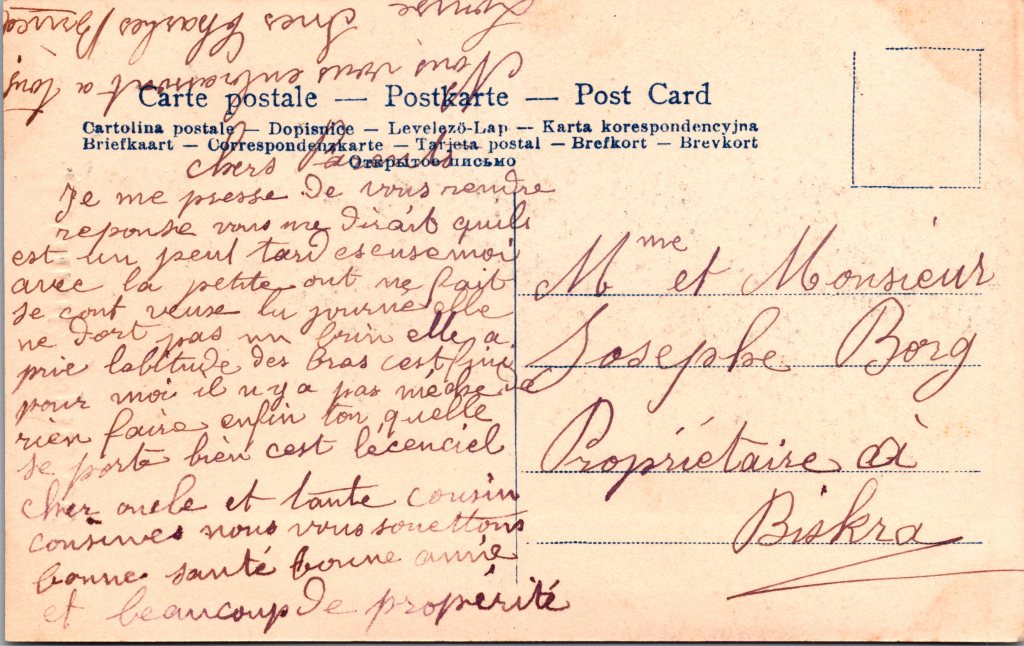 Carte postale — Postkarte — Post Card
Cartolina postale — Dopisnice — Levelező-Lap — Karta korespondencyjna
Briefkaart — Correspondenzkarte — Tarjeta postal — Brefkort — Brevkort
Открытое письмо
chers Parents
Je me presse de vous rendre
reponse vous me dirait quils
est un peut tard escuse moi
avec la petite ont ne fait
se cont veuse la journe elle
ne dort pas un brin elle a
prie labitude des bras cest fini
pour moi il n y a pas mèche de
rien faire enfin ton quelle
se porte bien cest lécenciel
cher oncle et tante cousin
cousines nous vous souettons
bonne santé bonne année
et beaucoup de propérité
Nous vous embrassont a tous
Ines Charles
Louise
Mme et Monsieur
Josephe Borg
Propriétaire à
Biskra